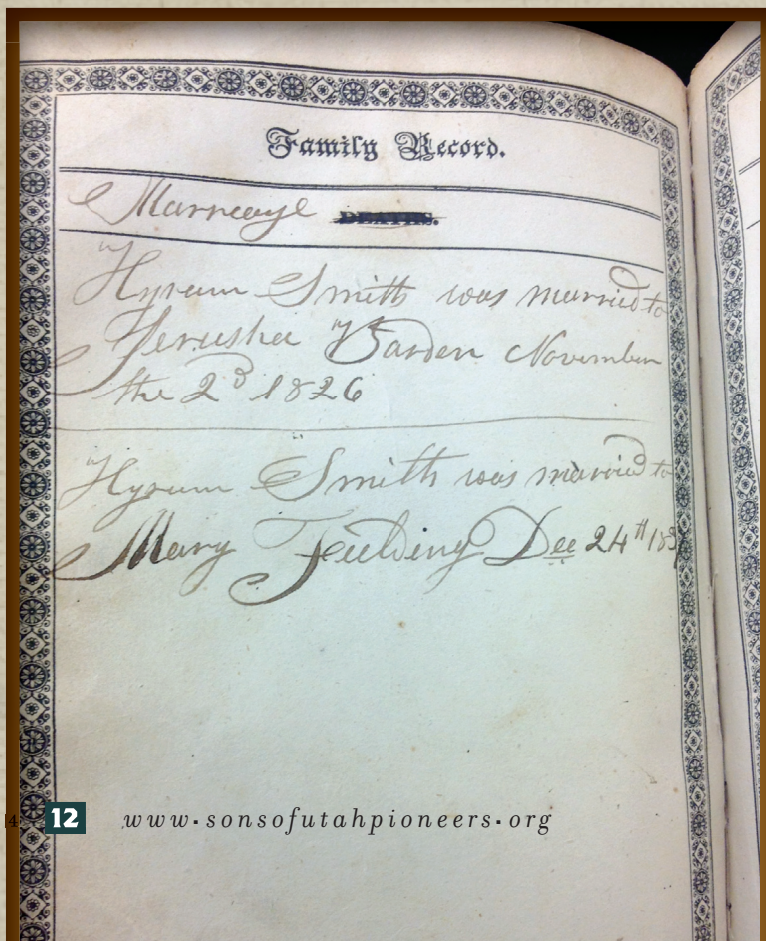 Family Record.
Marreage DEATHS.
Hyrum Smith was married to
Jerusha Barden November
the 2d 1826
Hyrum Smith was married to
Mary Fielding Dec 24th 1837
12 www.sonsofutahpioneers.org